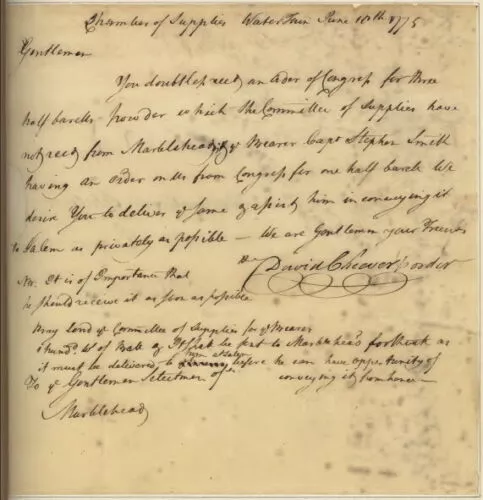 Chamber of Supplies Water Town June 18th 1775
Gentlemen
You doubtless recd an Order of Congress for three
half barells Powder which the Committee of Supplies have
not recd from Marblehead, ye Bearer Capt Stephen Smith
having an order on us from Congress for one half barel We
desire You to deliver ye same & assist him in conveying it
to Salem as privately as possible — We are Gentlemen your Friends
David Cheever pr order
NB. It is of Importance that
he should receive it as soon as possible
ye Committee of Supplies
hund. Wt of be sent to Marblehead forthwith as
it must be delivered to him at Salem before he can have opportunity of
conveying it from hence —
To ye Gentlemen Selectmen of
Marblehead